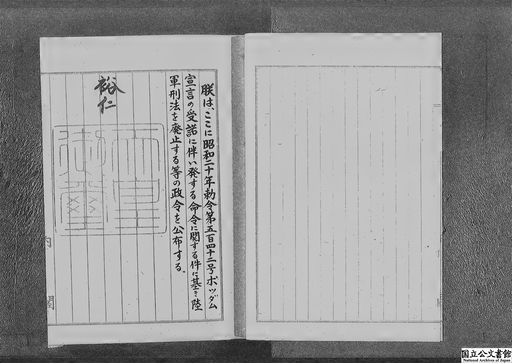 朕は、ここに昭和二十年勅令第五百四十二号ポツダム
宣言の受諾に伴い発する命令に関する件に基き陸
軍刑法を廃止する等の政令を公布する。
裕仁
天皇御璽
内閣
国立公文書館
National Archives of Japan